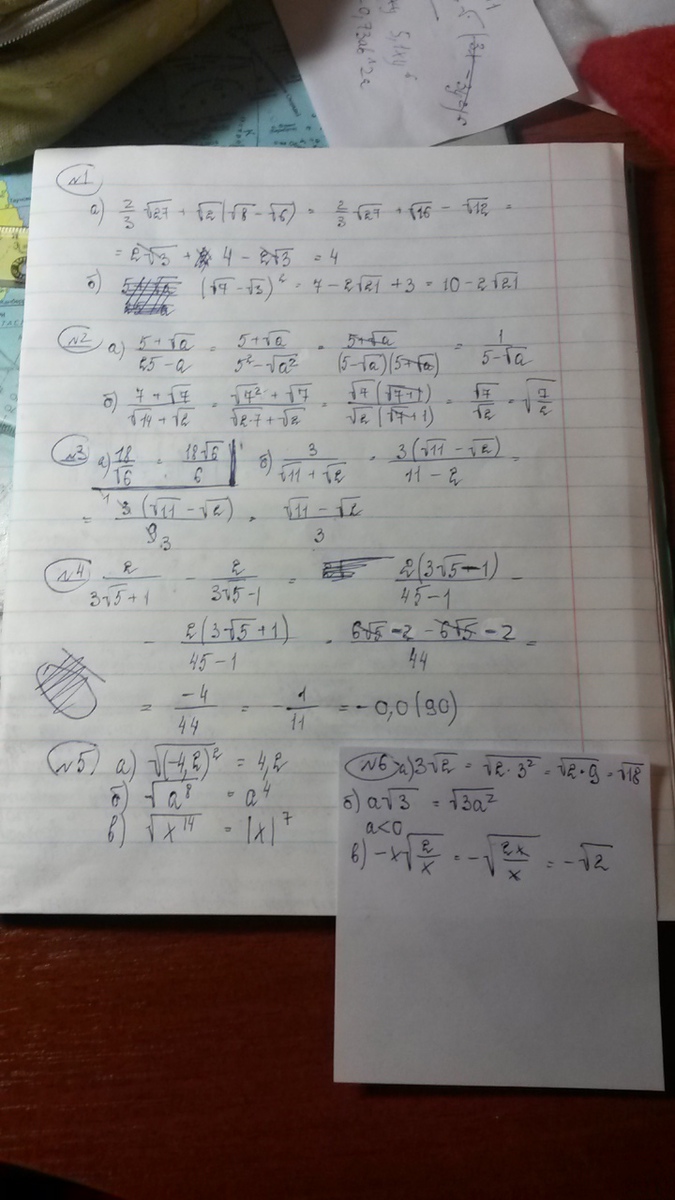 №1
а) 2/3 √27 + √2(√8 − √6) = 2/3 √27 + √16 − √12 =
= 2√3 + 4 − 2√3 = 4
б) (√7 − √3)² = 7 − 2√21 + 3 = 10 − 2√21
№2 а) (5+√a)/(25−a) = (5+√a)/(5²−√a²) = (5+√a)/((5−√a)(5+√a)) = 1/(5−√a)
б) (7+√7)/(√14+√2) = (√7²+√7)/(√2·7+√2) = (√7(√7+1))/(√2(√7+1)) = √7/√2 = √(7/2)
№3 а) 18/√6 = 18√6/6 б) 3/(√11+√2) = 3(√11−√2)/(11−2) =
= 3(√11−√2)/9 = (√11−√2)/3
№4 2/(3√5+1) − 2/(3√5−1) = 2(3√5−1)/(45−1) −
− 2(3√5+1)/(45−1) = (6√5−2−6√5−2)/44 =
= −4/44 = −1/11 = −0,0(90)
№5) а) √(−4,2)² = 4,2
б) √a⁸ = a⁴
в) √x¹⁴ = |x|⁷
№6 а) 3√2 = √2·3² = √2·9 = √18
б) a√3 = √3a²
a<0
в) −x√(2/x) = −√(2x/x) = −√2